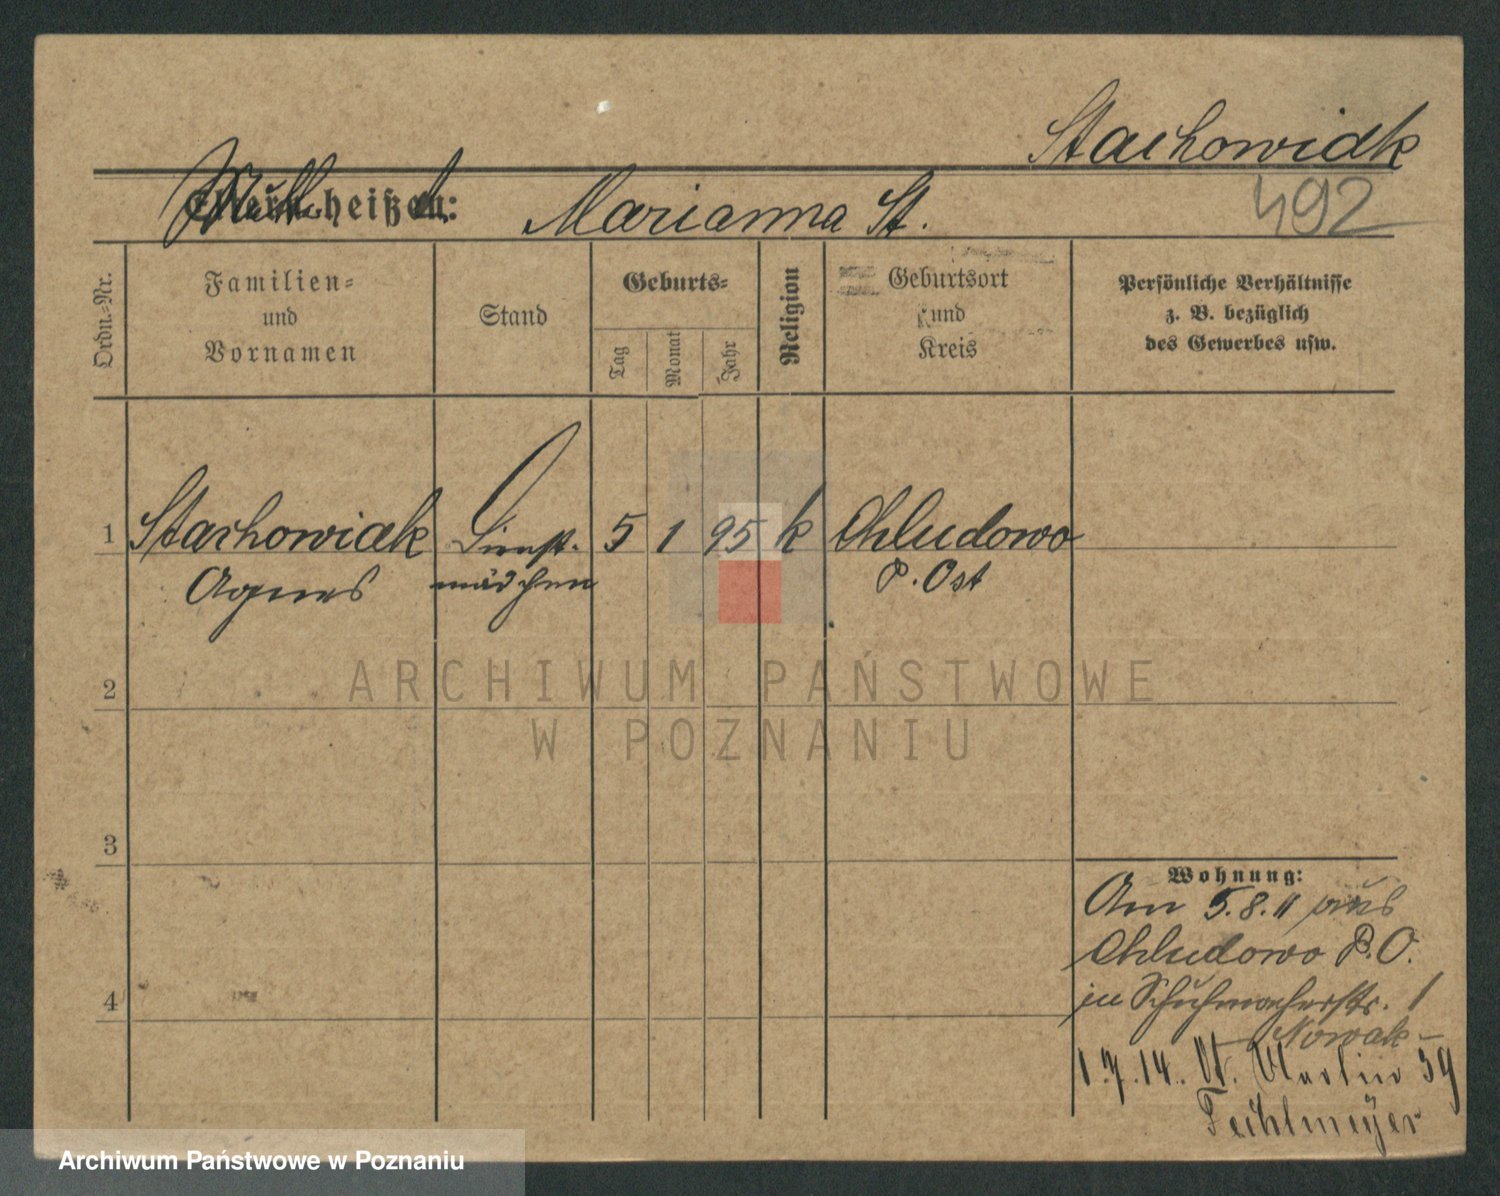 Stachowiak
heißen: Marianna St.
492
Ordn.-Nr.
Familien-
und
Vornamen
Stand
Geburts-
Tag
Monat
Jahr
Religion
Geburtsort
und
Kreis
Persönliche Verhältnisse
z. B. bezüglich
des Gewerbes usw.
1 Stachowiak Dienst- 5 1 95 k Chludowo
Agnes mädchen P. Ost
2
3
4
Wohnung:
Am 5.8.11 aus
Chludowo P.O.
in Schuhmacherstr. 1
Nowak
1.7.14. St. Martin 39
ARCHIWUM PAŃSTWOWE
W POZNANIU
Archiwum Państwowe w Poznaniu